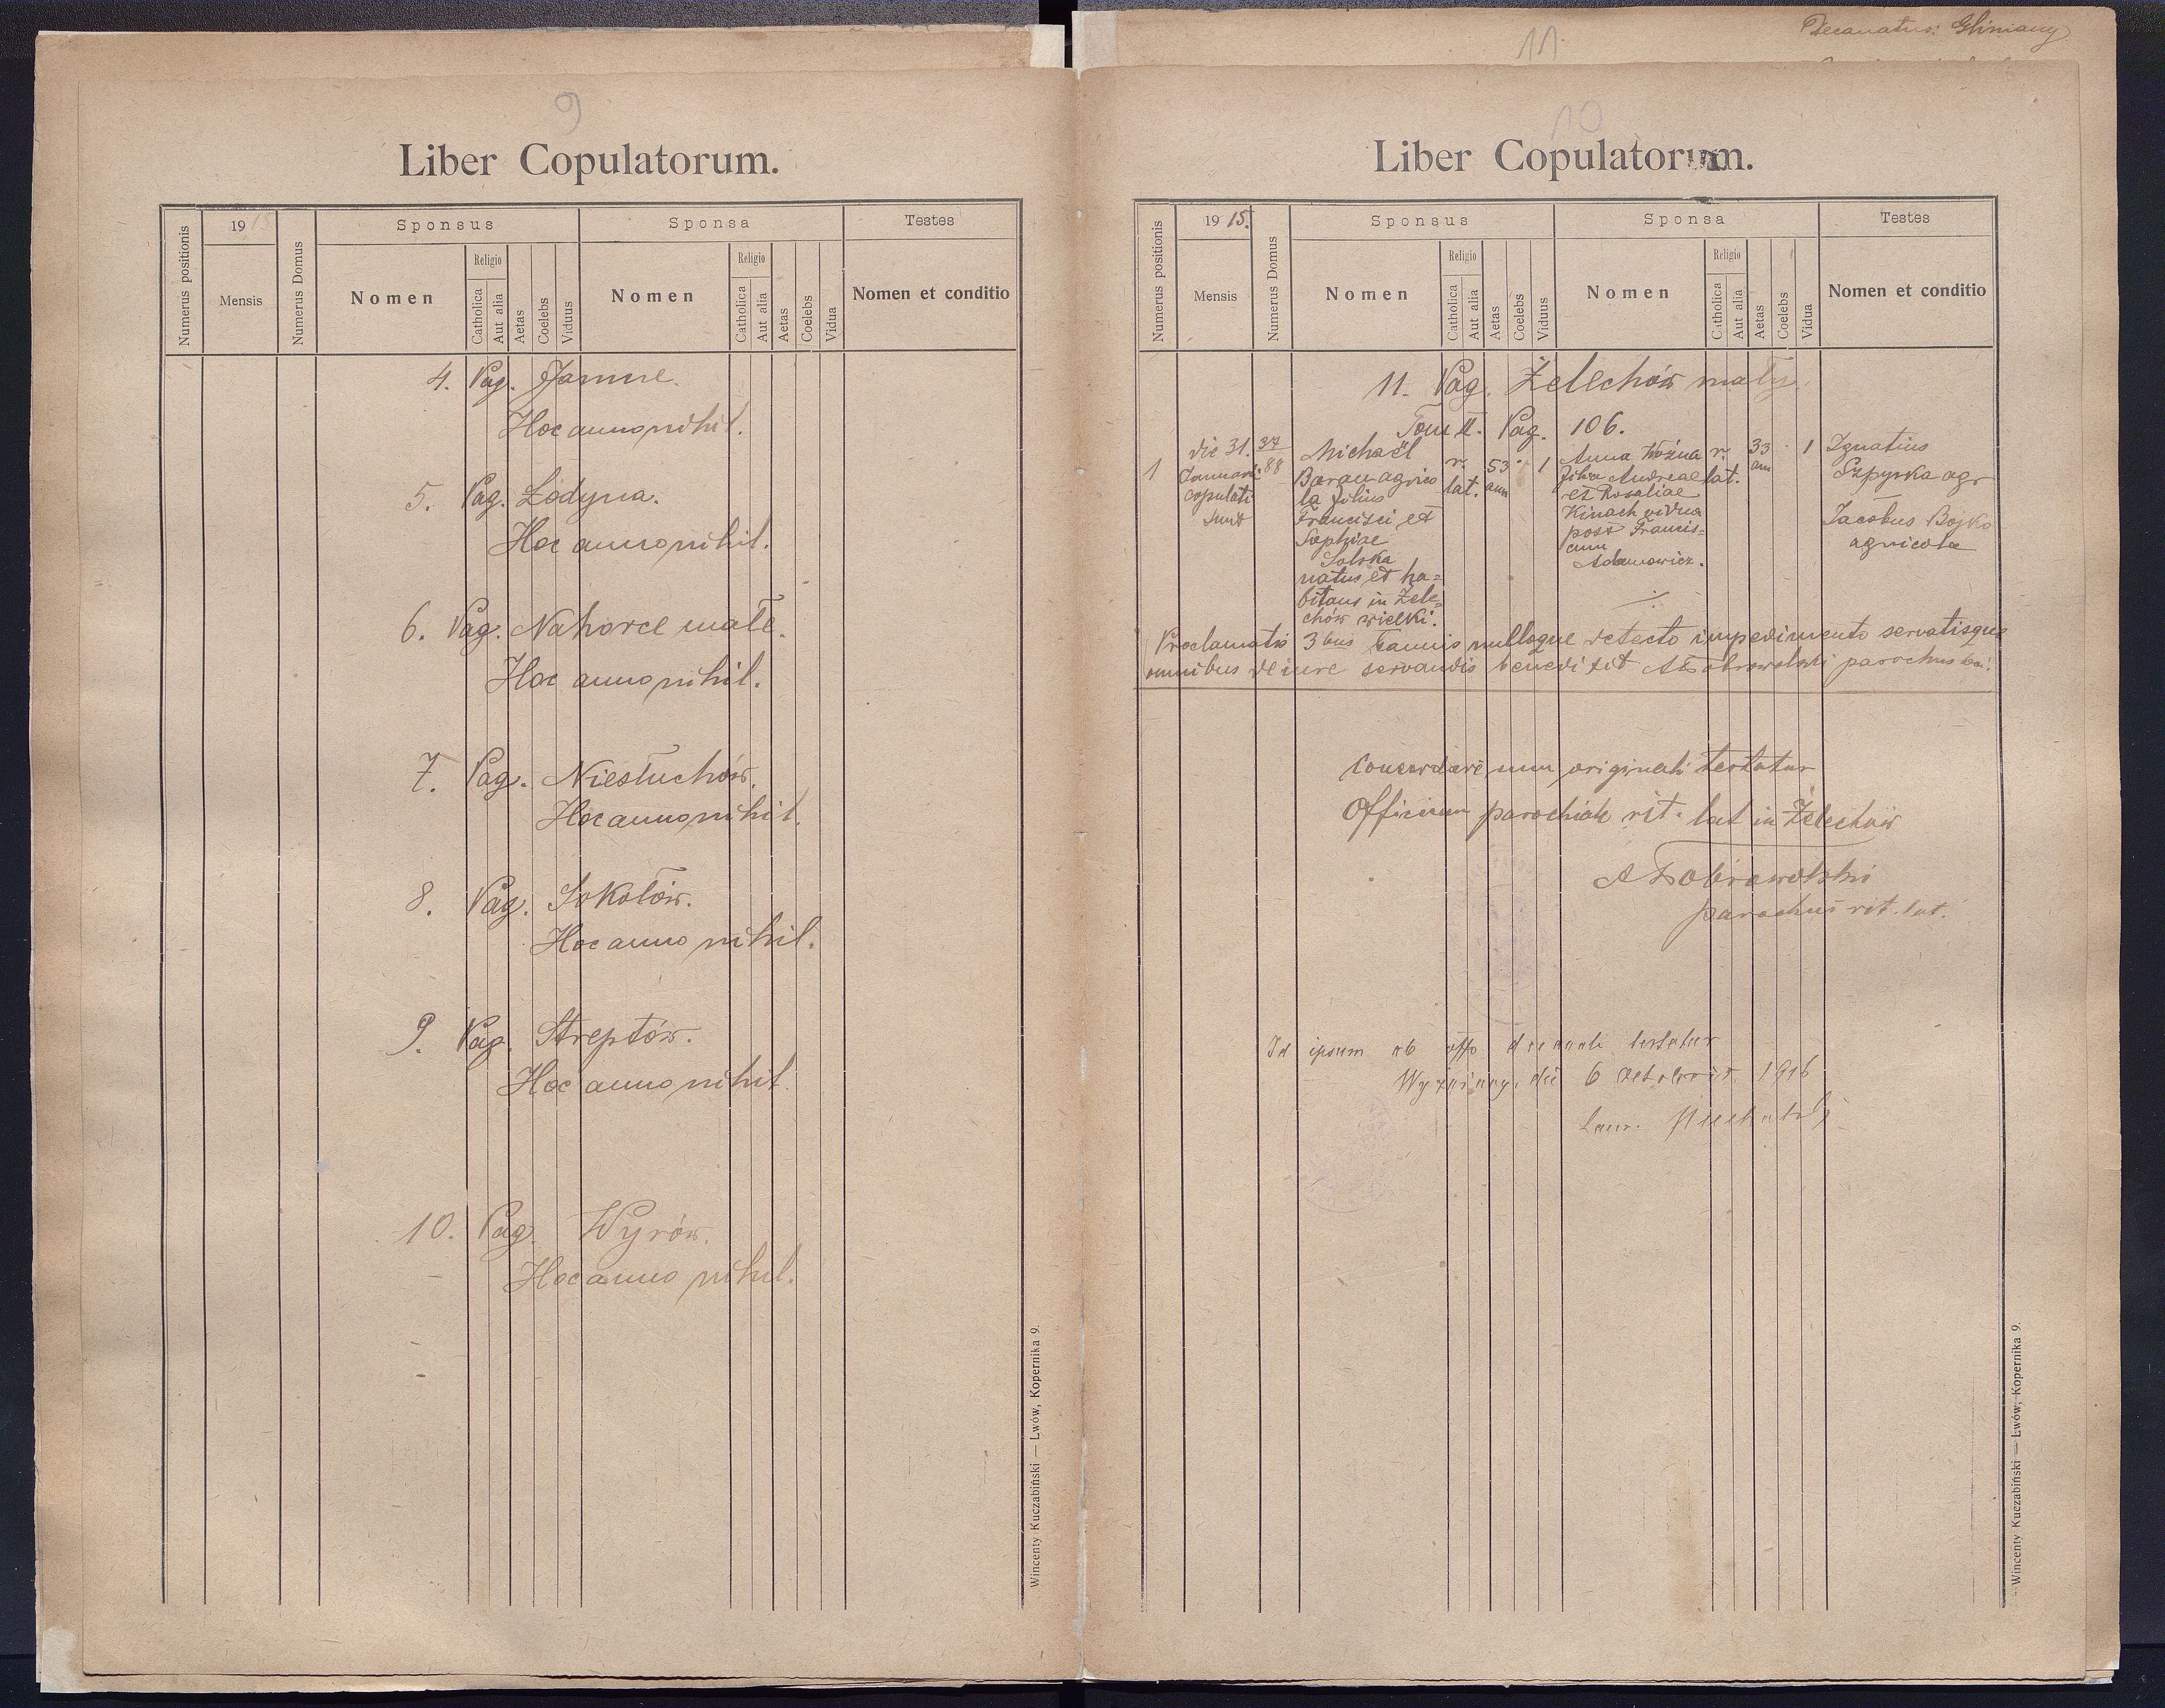 Decanatus: Gliniany
11
9
Liber Copulatorum.
Numerus positionis
1915
Mensis
Numerus Domus
Sponsus
Nomen
Religio
Catholica
Aut alia
Aetas
Coelebs
Viduus
Sponsa
Nomen
Religio
Catholica
Aut alia
Aetas
Coelebs
Vidua
Testes
Nomen et conditio
4. Pag. Jamne.
Hoc anno nihil.
5. Pag. Łodyna.
Hoc anno nihil.
6. Pag. Nahorce małe.
Hoc anno nihil.
7. Pag. Niesłuchów.
Hoc anno nihil.
8. Pag. Sokołów.
Hoc anno nihil.
9. Pag. Streptów.
Hoc anno nihil.
10. Pag. Wyrów.
Hoc anno nihil.
Wincenty Kuczabiński — Lwów, Kopernika 9.
10
Liber Copulatorum.
Numerus positionis
1915.
Mensis
Numerus Domus
Sponsus
Nomen
Religio
Catholica
Aut alia
Aetas
Coelebs
Viduus
Sponsa
Nomen
Religio
Catholica
Aut alia
Aetas
Coelebs
Vidua
Testes
Nomen et conditio
11. Pag. Żelechów mały.
Tom II. Pag. 106.
1
die 31.
Januarii
copulati
sunt
37
88
Michaël
Baran agrico
la filius
Francisci et
Sophiae
Solska
natus et ha=
bitans in Żele=
chów wielki.
r.
lat.
53
ann
1
Anna Woźna
filia Andreae
et Rosaliae
Kinach vidua
post Francis=
cum
Adamowicz.
r.
lat.
33
ann
1
Ignatius
Szpyrka agr
Jacobus Bojko
agricola
Proclamatis 3bus bannis nulloque detecto impedimento servatisque
omnibus de iure servandis benedixit A Dobrowolski parochus loci.
Concordare cum originali testatur
Officium parochiale rit. lat in Żelechów
A Dobrowolski
parochus rit. lat.
Id ipsum ab offo decanali testatur
Wyżniany, die 6 Octobris 1916
Laur.
Wincenty Kuczabiński — Lwów, Kopernika 9.